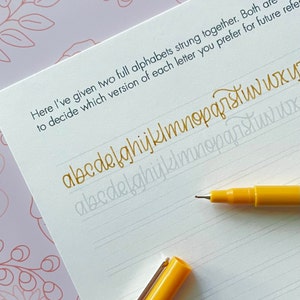 Here I've given two full alphabets strung together. Both are
to decide which version of each letter you prefer for future
abcdefghijklmnopqrstuvwx
abcdefghijklmnopqrstuvwx